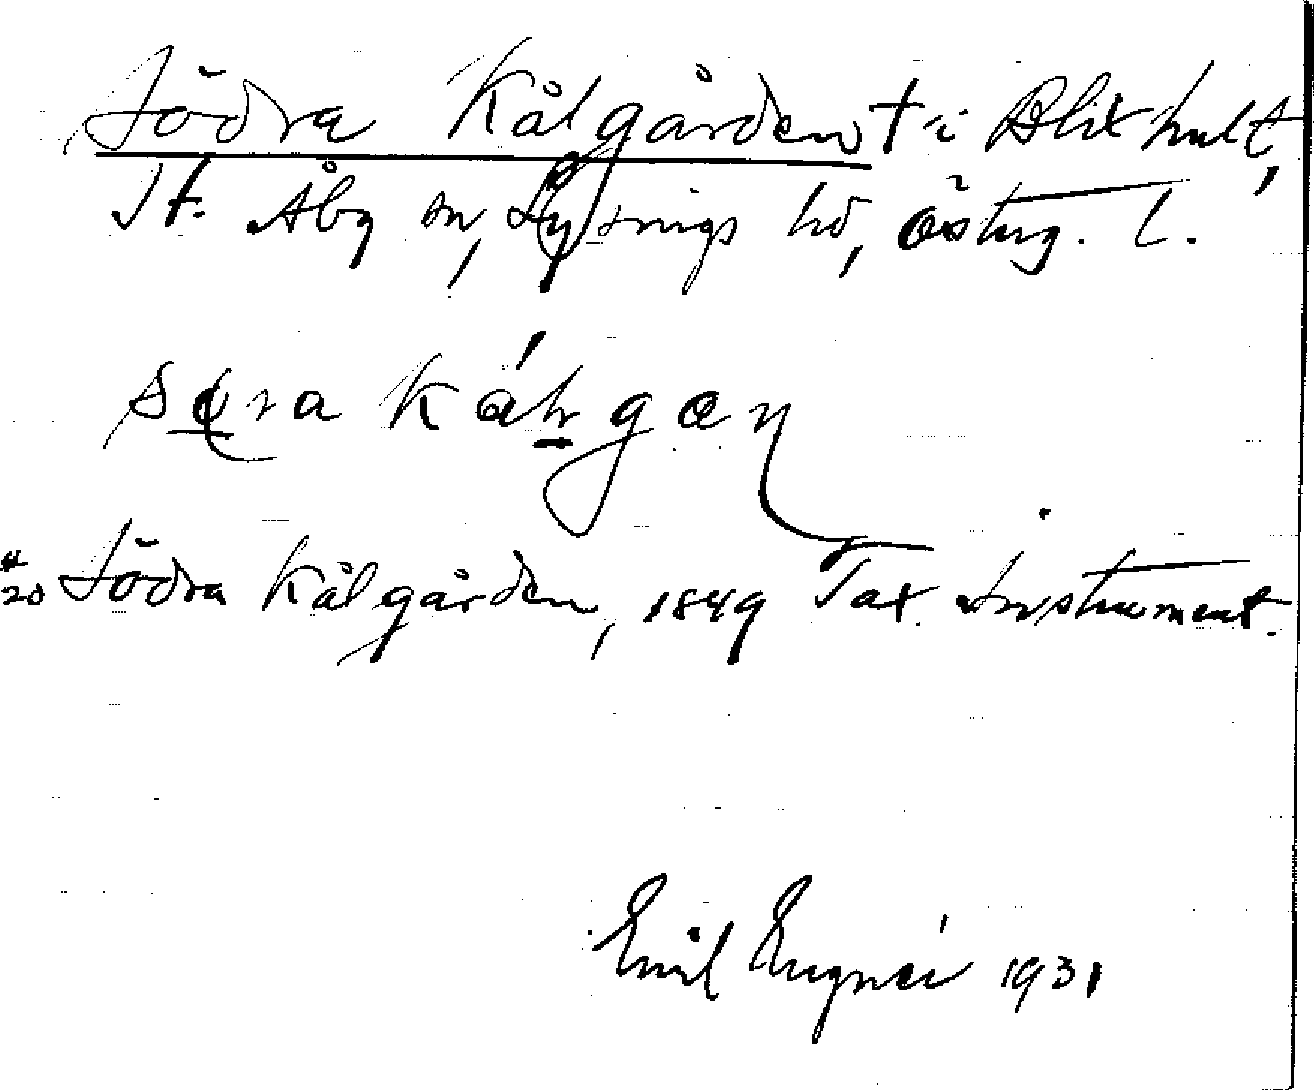 Södra Kålgården † i Blixhult,
St. Åby sn, Lysings hd, Österg. l.
Södra Kålgården, 1849 Tax. Instrument.
Emil 1931